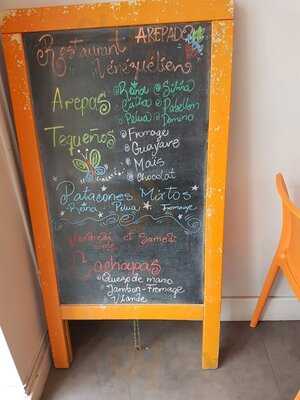 Restaurant AREPADO
Vénézuélien
Arepas
Reina Sifrina
Catira Pabellon
Pelua Domino
Tequeños
Fromage
Guayave
Maïs
Chocolat
Patacones Mixtos
Reina Pelua Fromage
Vendredi et Samedi
Cachapas
Queso de mano
Jambon-Fromage
Viande